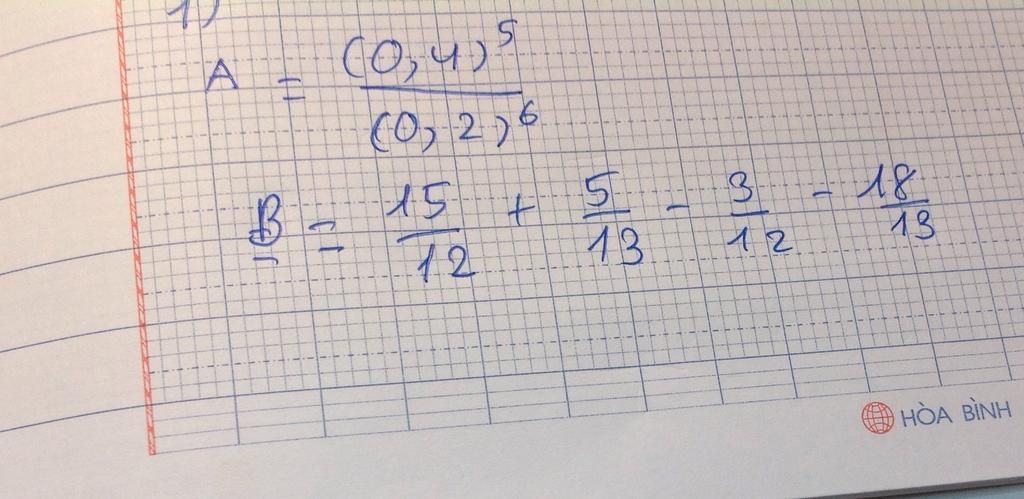 1)
A = (0,4)^5 / (0,2)^6
B = 15/12 + 5/13 - 3/12 - 18/13
HÒA BÌNH